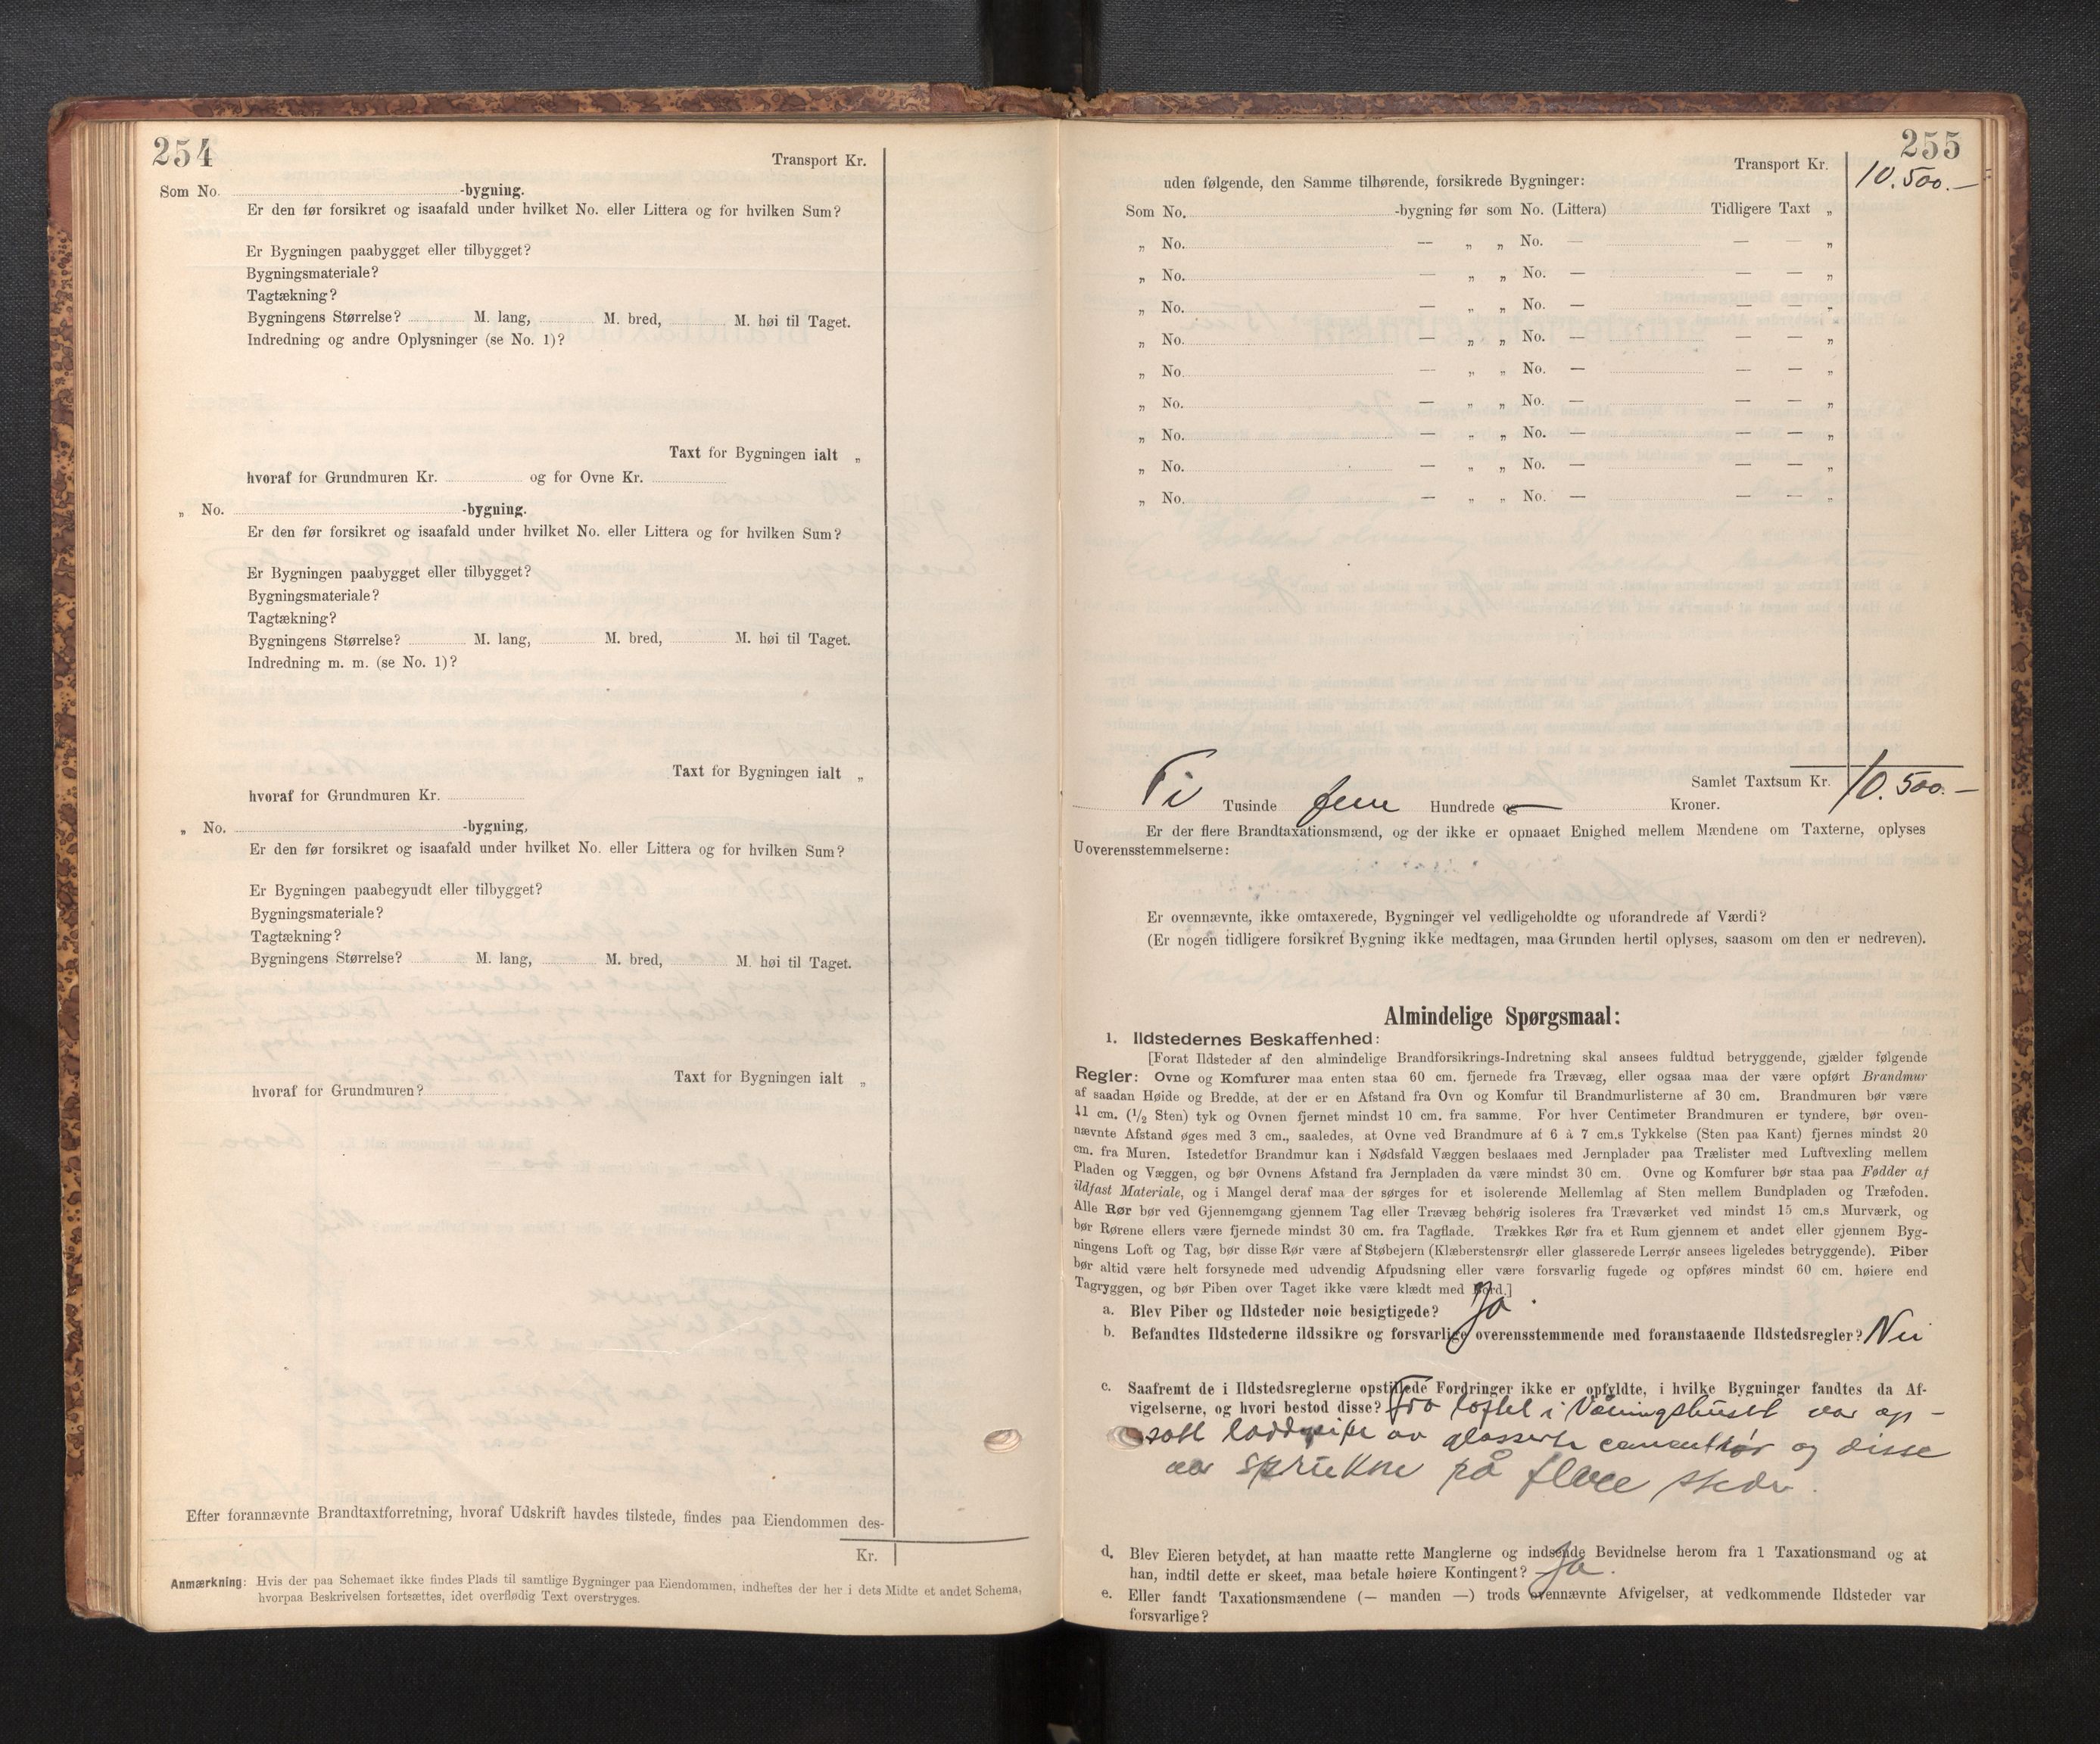 254
Transport Kr.
Som No. -bygning.
Er den før forsikret og isaafald under hvilket No. eller Littera og for hvilken Sum?
Er Bygningen paabygget eller tilbygget?
Bygningsmateriale?
Tagtækning?
Bygningens Størrelse? M. lang, M. bred, M. høi til Taget.
Indredning og andre Oplysninger (se No. 1)?
Taxt for Bygningen ialt „
hvoraf for Grundmuren Kr. og for Ovne Kr.
„ No. -bygning.
Er den før forsikret og isaafald under hvilket No. eller Littera og for hvilken Sum?
Er Bygningen paabygget eller tilbygget?
Bygningsmateriale?
Tagtækning?
Bygningens Størrelse? M. lang, M. bred, M. høi til Taget.
Indredning m. m. (se No. 1)?
Taxt for Bygningen ialt „
hvoraf for Grundmuren Kr.
„ No. -bygning,
Er den før forsikret og isaafald under hvilket No. eller Littera og for hvilken Sum?
Er Bygningen paabegyndt eller tilbygget?
Bygningsmateriale?
Tagtækning?
Bygningens Størrelse? M. lang, M. bred, M. høi til Taget.
Taxt for Bygningen ialt „
hvoraf for Grundmuren?
Efter forannævnte Brandtaxtforretning, hvoraf Udskrift havdes tilstede, findes paa Eiendommen des-
Kr.
Anmærkning: Hvis der paa Schemaet ikke findes Plads til samtlige Bygninger paa Eiendommen, indheftes der her i dets Midte et andet Schema,
hvorpaa Beskrivelsen fortsættes, idet overflødig Text overstryges.
255
Transport Kr. 10.500.—
uden følgende, den Samme tilhørende, forsikrede Bygninger:
Som No. -bygning før som No. (Littera) Tidligere Taxt „
„ No. — „ „ No. — — — „
„ No. — „ „ No. — — — „
„ No. — „ „ No. — — — „
„ No. — „ „ No. — — — „
„ No. — „ „ No. — — — „
„ No. — „ „ No. — — — „
„ No. — „ „ No. — — — „
„ No. — „ „ No. — — — „
„ No. — „ „ No. — — — „
Samlet Taxtsum Kr. 10.500.—
Ti Tusinde fem Hundrede og — Kroner.
Er der flere Brandtaxationsmænd, og der ikke er opnaaet Enighed mellem Mændene om Taxterne, oplyses
Uoverensstemmelserne:
Er ovennævnte, ikke omtaxerede, Bygninger vel vedligeholdte og uforandrede af Værdi?
(Er nogen tidligere forsikret Bygning ikke medtagen, maa Grunden hertil oplyses, saasom om den er nedreven).
Almindelige Spørgsmaal:
1. Ildstedernes Beskaffenhed:
[Forat Ildsteder af den almindelige Brandforsikrings-Indretning skal ansees fuldtud betryggende, gjælder følgende
Regler: Ovne og Komfurer maa enten staa 60 cm. fjernede fra Trævæg, eller ogsaa maa der være opført Brandmur
af saadan Høide og Bredde, at der er en Afstand fra Ovn og Komfur til Brandmurlisterne af 30 cm. Brandmuren bør være
11 cm. (1/2 Sten) tyk og Ovnen fjernet mindst 10 cm. fra samme. For hver Centimeter Brandmuren er tyndere, bør oven-
nævnte Afstand øges med 3 cm., saaledes, at Ovne ved Brandmure af 6 à 7 cm.s Tykkelse (Sten paa Kant) fjernes mindst 20
cm. fra Muren. Istedetfor Brandmur kan i Nødsfald Væggen beslaaes med Jernplader paa Trælister med Luftvexling mellem
Pladen og Væggen, og bør Ovnens Afstand fra Jernpladen da være mindst 30 cm. Ovne og Komfurer bør staa paa Fødder af
ildfast Materiale, og i Mangel deraf maa der sørges for et isolerende Mellemlag af Sten mellem Bundpladen og Træfoden.
Alle Rør bør ved Gjennemgang gjennem Tag eller Trævæg behørig isoleres fra Træværket ved mindst 15 cm.s Murværk, og
bør Rørene ellers være fjernede mindst 30 cm. fra Tagflade. Trækkes Rør fra et Rum gjennem et andet eller gjennem Byg-
ningens Loft og Tag, bør disse Rør være af Støbejern (Klæberstensrør eller glasserede Lerrør ansees ligeledes betryggende). Piber
bør altid være helt forsynede med udvendig Afpudsning eller være forsvarlig fugede og opføres mindst 60 cm. høiere end
Tagryggen, og bør Piben over Taget ikke være klædt med Bord.]
a. Blev Piber og Ildsteder nøie besigtigede? Ja.
b. Befandtes Ildstederne ildssikre og forsvarlige overensstemmende med foranstaaende Ildstedsregler? Nei
c. Saafremt de i Ildstedsreglerne opstillede Fordringer ikke er opfyldte, i hvilke Bygninger fandtes da Af-
vigelserne, og hvori bestod disse? Fra loftet i Våningshuset var op-
satt loddpipe av glasserte cementrør og disse
var sprukne på flere steder.
d. Blev Eieren betydet, at han maatte rette Manglerne og indsende Bevidnelse herom fra 1 Taxationsmand og at
han, indtil dette er skeet, maa betale høiere Kontingent? Ja.
e. Eller fandt Taxationsmændene (— manden —) trods ovennævnte Afvigelser, at vedkommende Ildsteder var
forsvarlige?